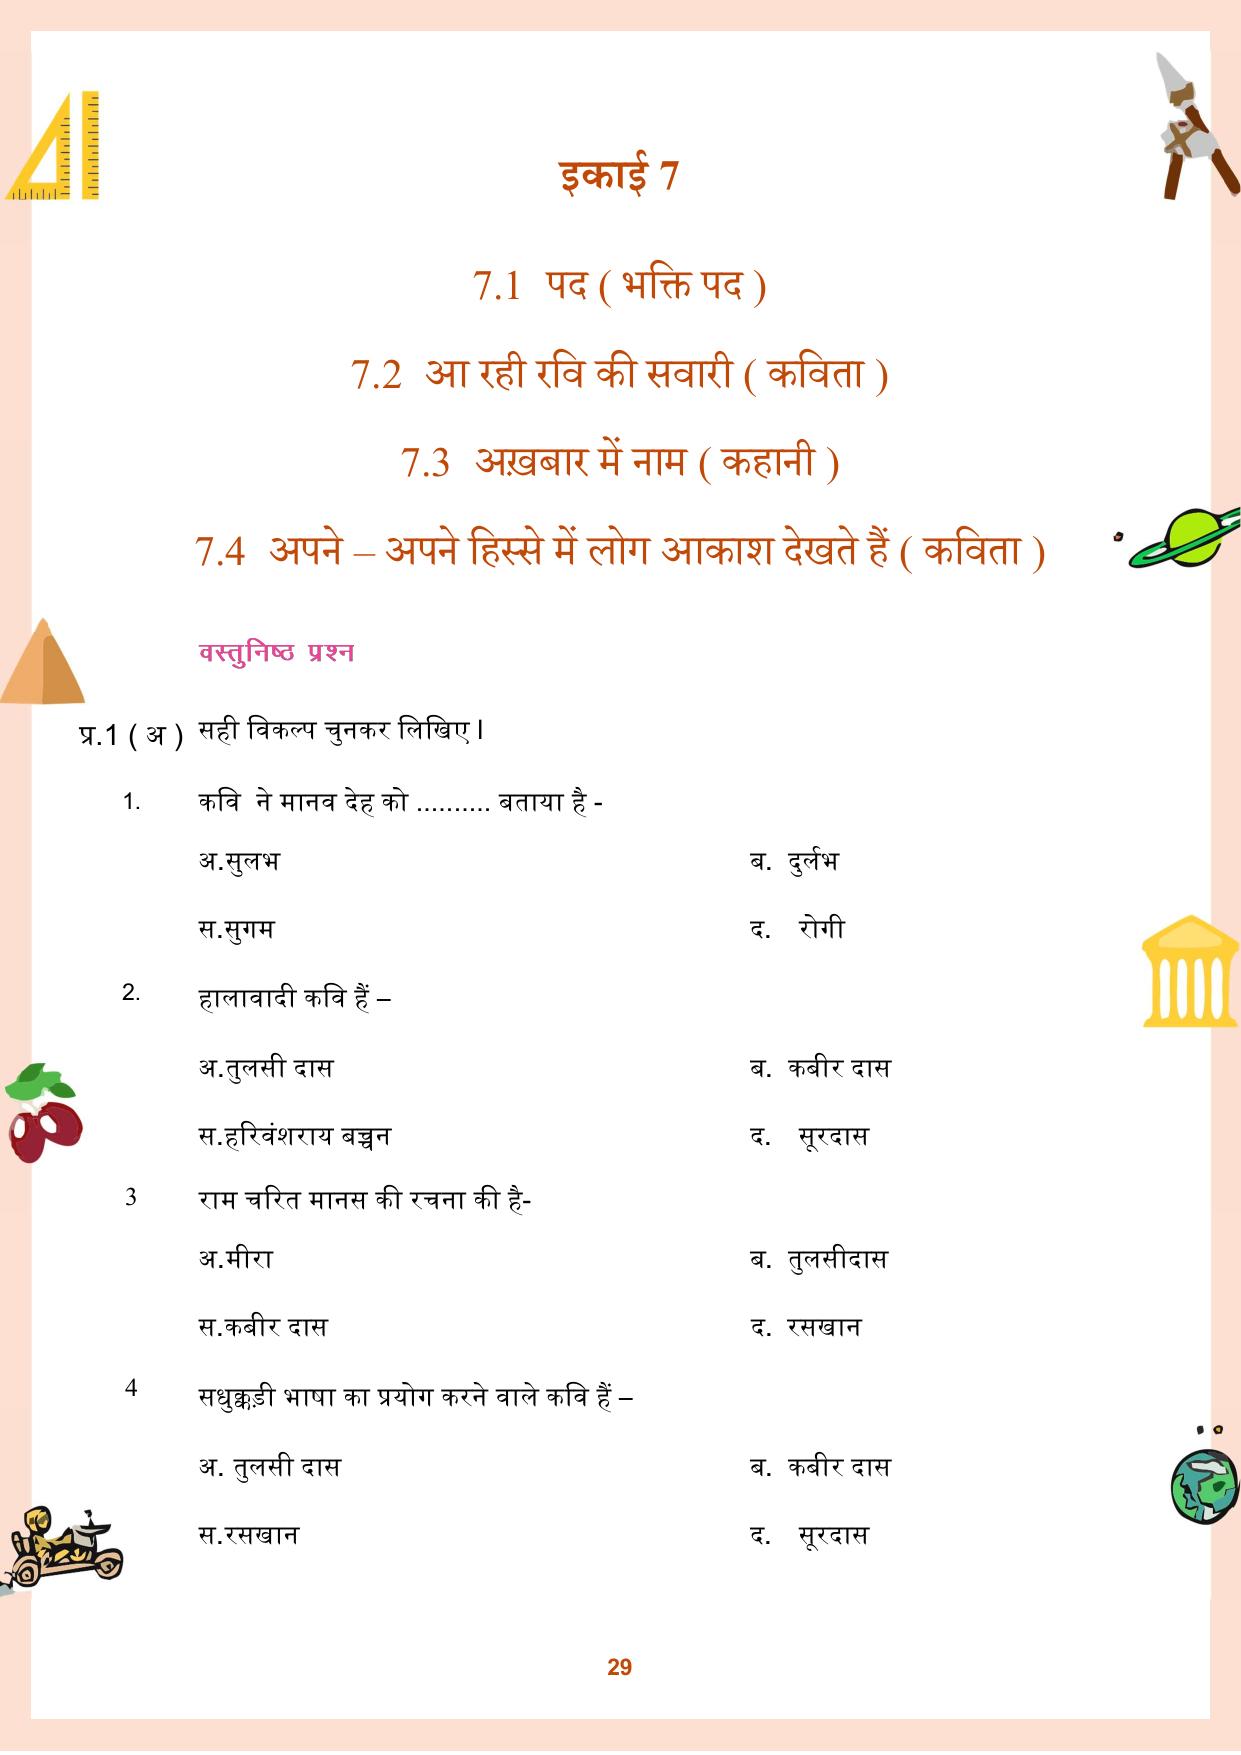 इकाई 7
7.1 पद ( भक्ति पद )
7.2 आ रही रवि की सवारी ( कविता )
7.3 अख़बार में नाम ( कहानी )
7.4 अपने – अपने हिस्से में लोग आकाश देखते हैं ( कविता )
वस्तुनिष्ठ प्रश्न
प्र.1 ( अ ) सही विकल्प चुनकर लिखिए।
1. कवि ने मानव देह को .......... बताया है -
अ.सुलभ ब. दुर्लभ
स.सुगम द. रोगी
2. हालावादी कवि हैं –
अ.तुलसी दास ब. कबीर दास
स.हरिवंशराय बच्चन द. सूरदास
3 राम चरित मानस की रचना की है-
अ.मीरा ब. तुलसीदास
स.कबीर दास द. रसखान
4 सधुक्कड़ी भाषा का प्रयोग करने वाले कवि हैं –
अ. तुलसी दास ब. कबीर दास
स.रसखान द. सूरदास
29